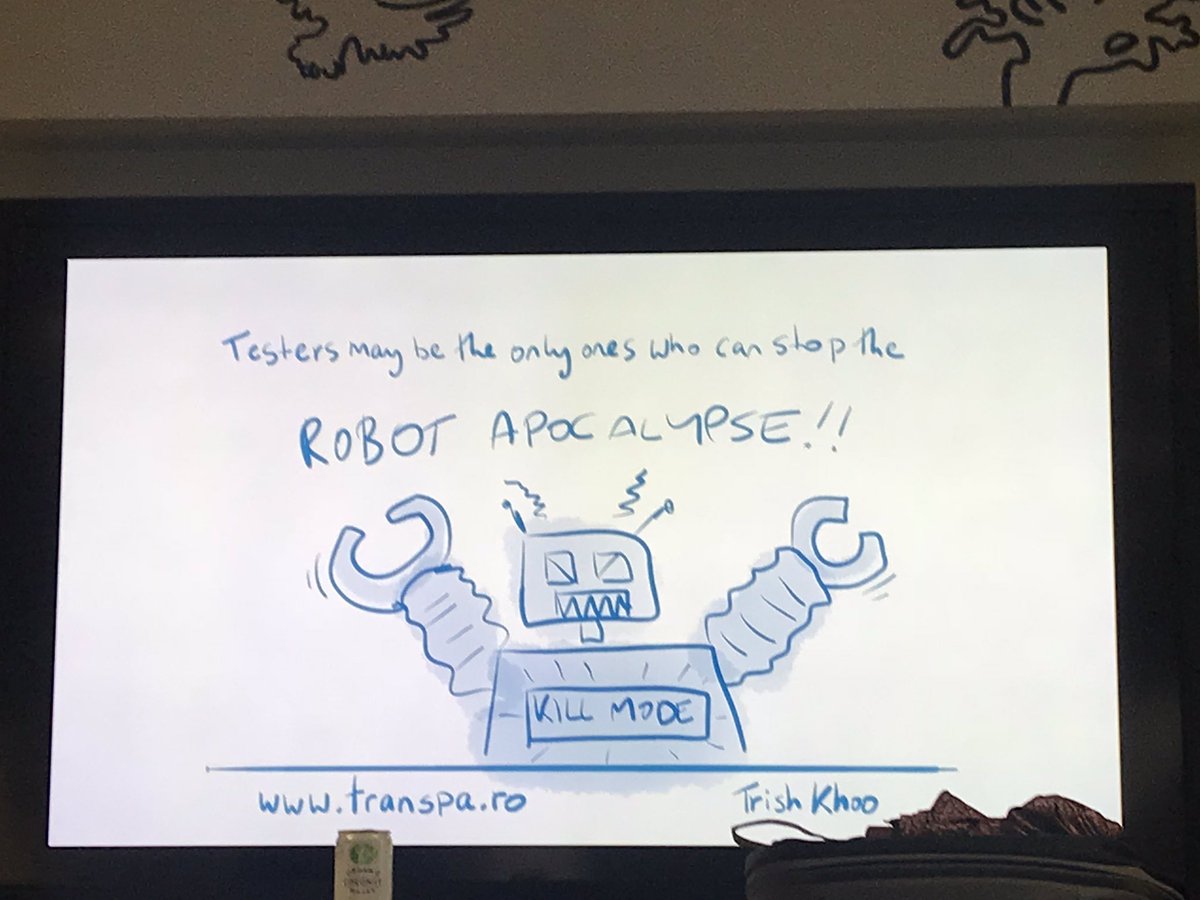 Testers may be the only ones who can stop the
ROBOT APOCALYPSE!!
KILL MODE
www.transpa.ro
Trish Khoo